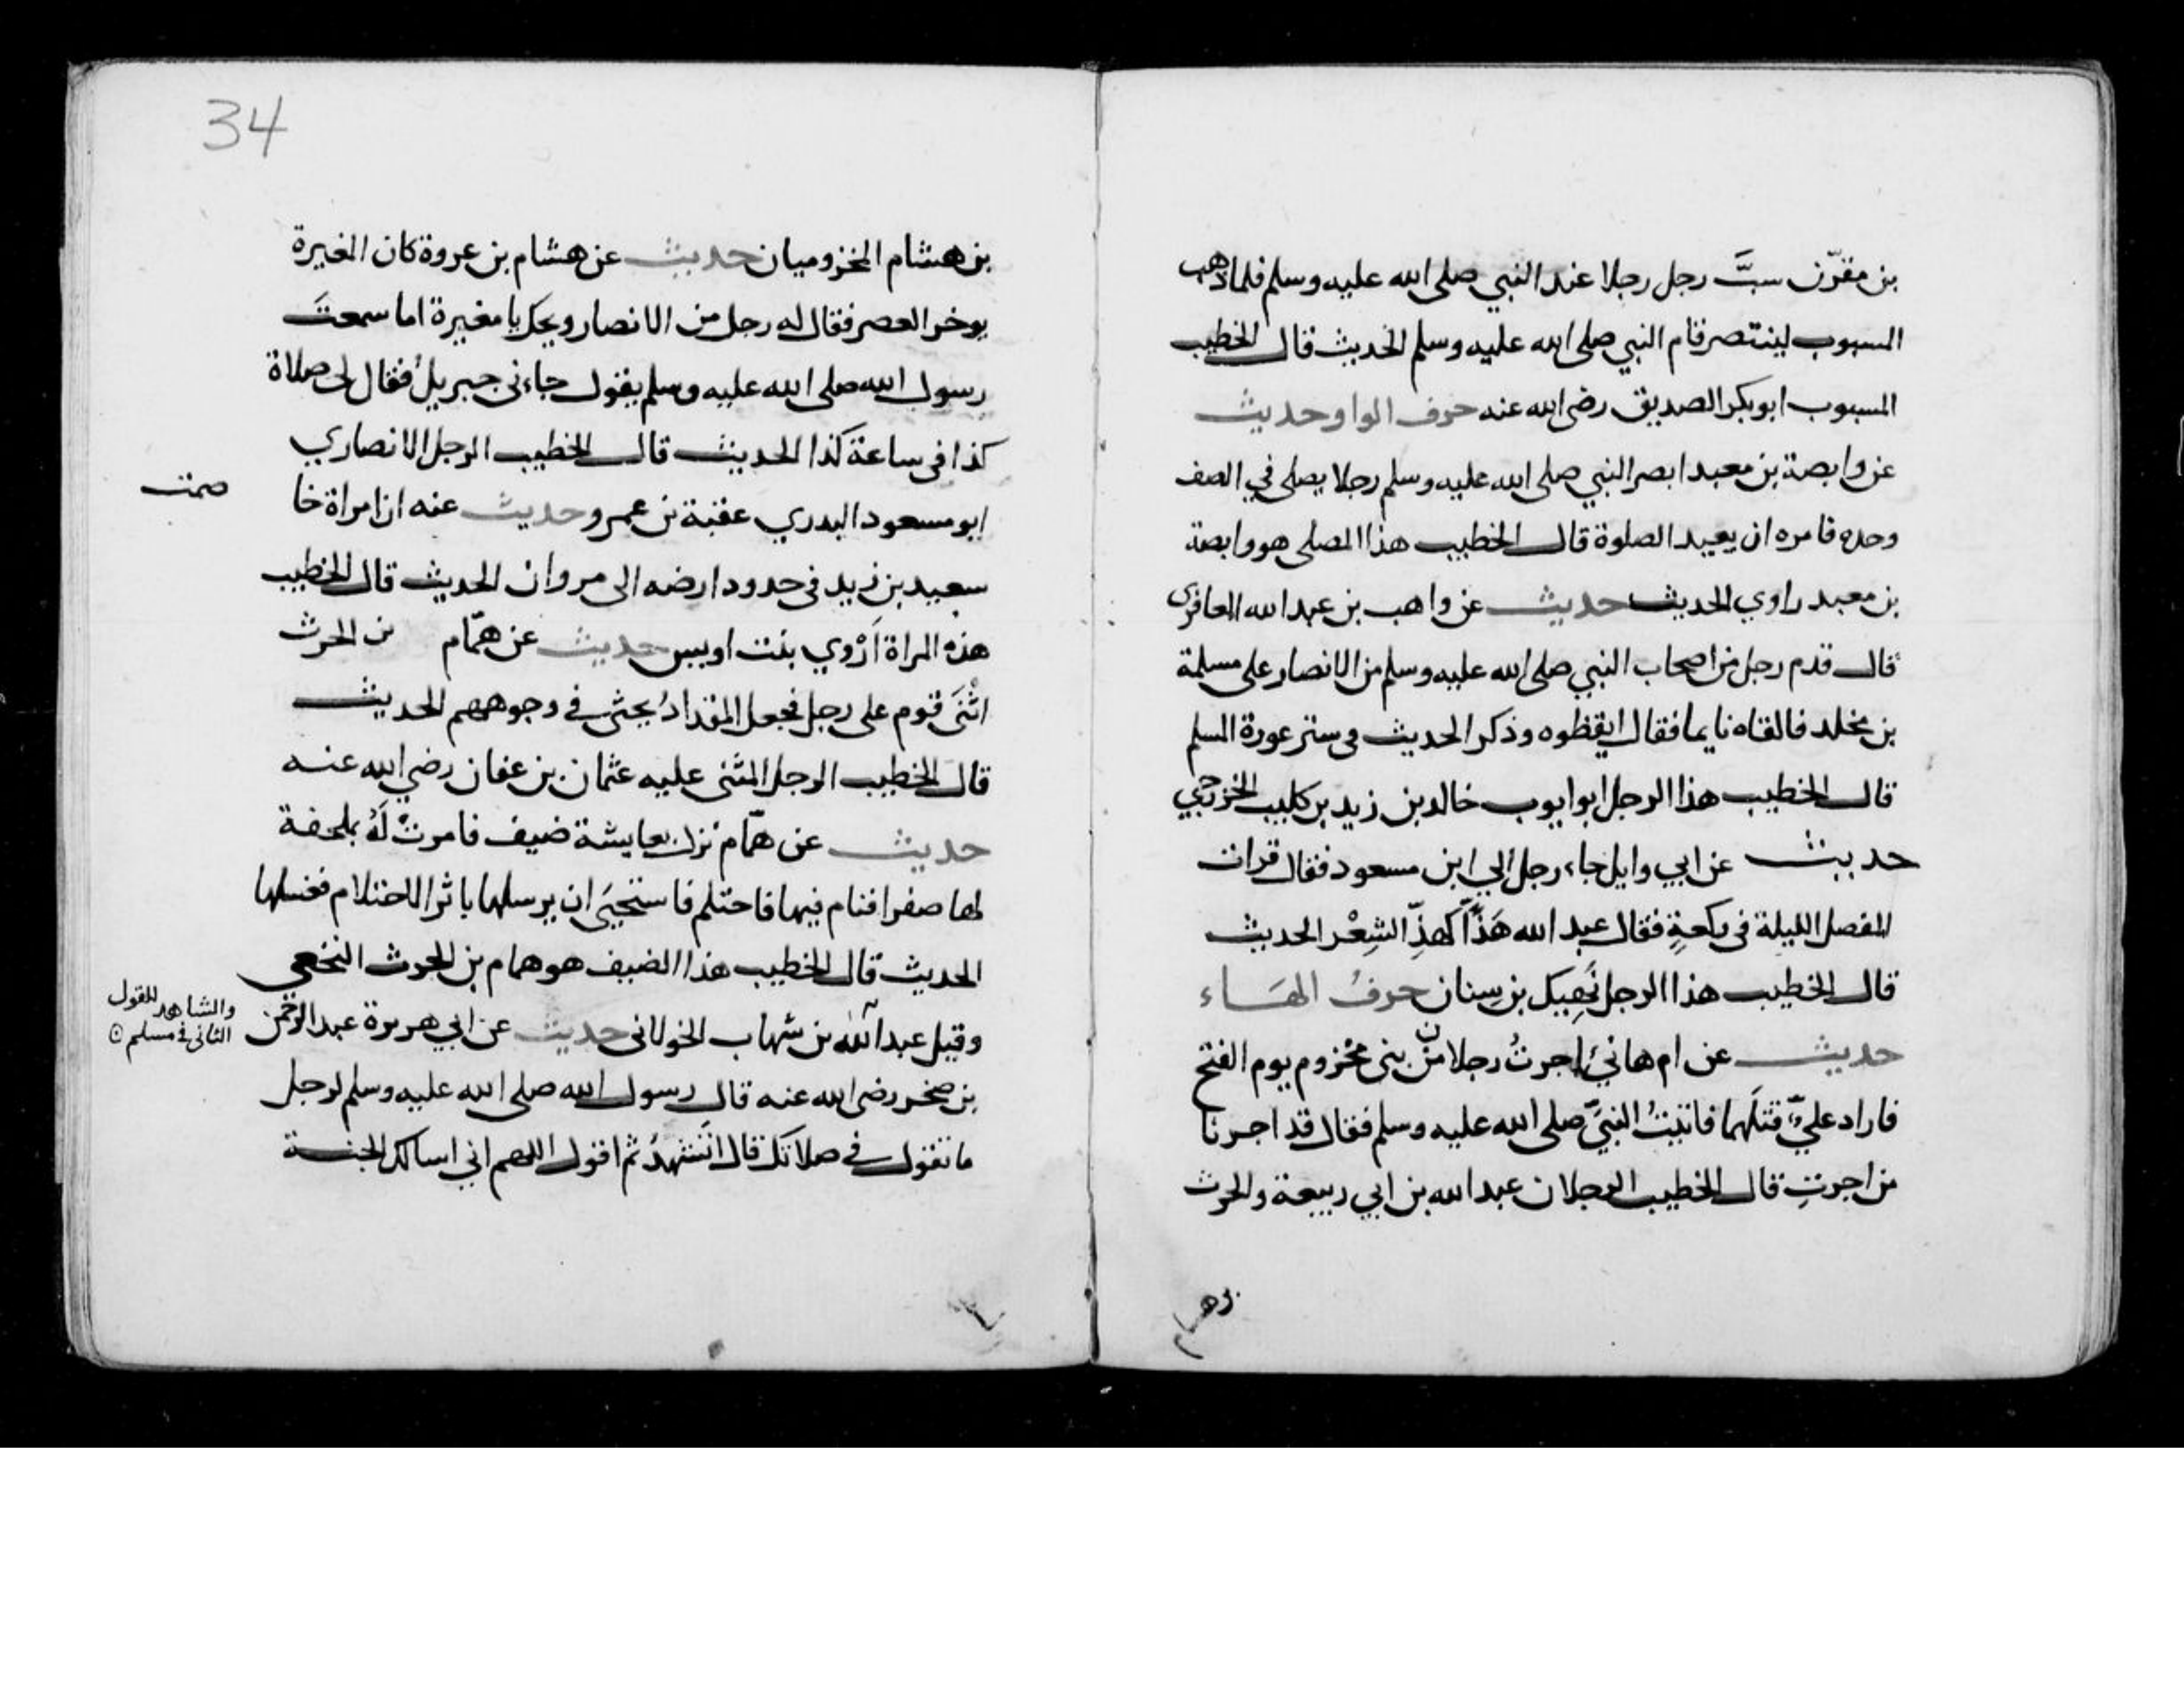 بن مقرّن سبَّ رجل رجلا عند النبي صلى الله عليه وسلم فلما ذهب
المسبوب لينتصر قام النبي صلى الله عليه وسلم الحديث قال الخطيب
المسبوب ابو بكر الصديق رضى الله عنه حرف الواو حديث
عن وابصة بن معبد ابصر النبي صلى الله عليه وسلم رجلا يصلى في الصف
وحده فامره ان يعيد الصلوة قال الخطيب هذا المصلى هو وابصة
بن معبد راوي الحديث حديث عن واهب بن عبد الله المعافرى
قال قدم رجل من اصحاب النبي صلى الله عليه وسلم من الانصار على مسلمة
بن مخلد فالقاه نايما فقال ايقظوه وذكر الحديث في ستر عورة المسلم
قال الخطيب هذا الرجل ابو ايوب خالد بن زيد بن كليب الخزرجي
حديث عن ابي وايل جاء رجل الي ابن مسعود فقال قرات
المفصل الليلة في ركعةٍ فقال عبد الله هَذًّا كهذِّ الشِعْر الحديث
قال الخطيب هذا الرجل نَهِيك بن سِنان حرفُ الهَاء
حديث عن ام هانئ اجرتُ رجلا من بنى مخزوم يوم الفتح
فاراد عليّ قتلَهما فاتيتُ النبيَّ صلى الله عليه وسلم فقال قد اجرنا
من اجرتِ قال الخطيب الرجلان عبد الله بن ابي ربيعة والحرث
بن ه
34
بن هشام المخزوميان حديث عن هشام بن عروة كان المغيرة
يوخر العصر فقال له رجل من الانصار ويحك يا مغيرة اما سمعتَ
رسول الله صلى الله عليه وسلم يقول جاءنى جبريلُ فقال لى صلاة
كذا فى ساعة كذا الحديث قال الخطيب الرجل الانصاري
ابو مسعود البدري عقبة بن عمرو حديث عنه ان امراة خا
صمت
سعيد بن زيد فى حدود ارضه الى مروان الحديث قال الخطيب
هذه المراة اَرْوي بنت اويس حديث عن همّام بن الحرث
اثْنَى قوم على رجل فجعل المقدادُ يحثى في وجوههم الحديث
قال الخطيب الرجل المثنى عليه عثمان بن عفان رضي الله عنه
حديث عن همّام نزل بعايشة ضيف فامرتْ لَهُ بملحفة
لها صفرا فنام فيها فاحتلم فاستحيَى ان يرسلها باثر الاحتلام فغسلها
الحديث قال الخطيب هذا الضيف هو همام بن الحرث النخعي
وقيل عبد الله بن شهاب الخولانى حديث عن ابي هريرة عبد الرحمن
والشاهد للقول
الثانى في مسلم
بن صخر رضى الله عنه قال رسول الله صلى الله عليه وسلم لرجل
ما تقول في صلاتك قال اتَشهدُ ثم اقول اللهم اني اسالك الجنة